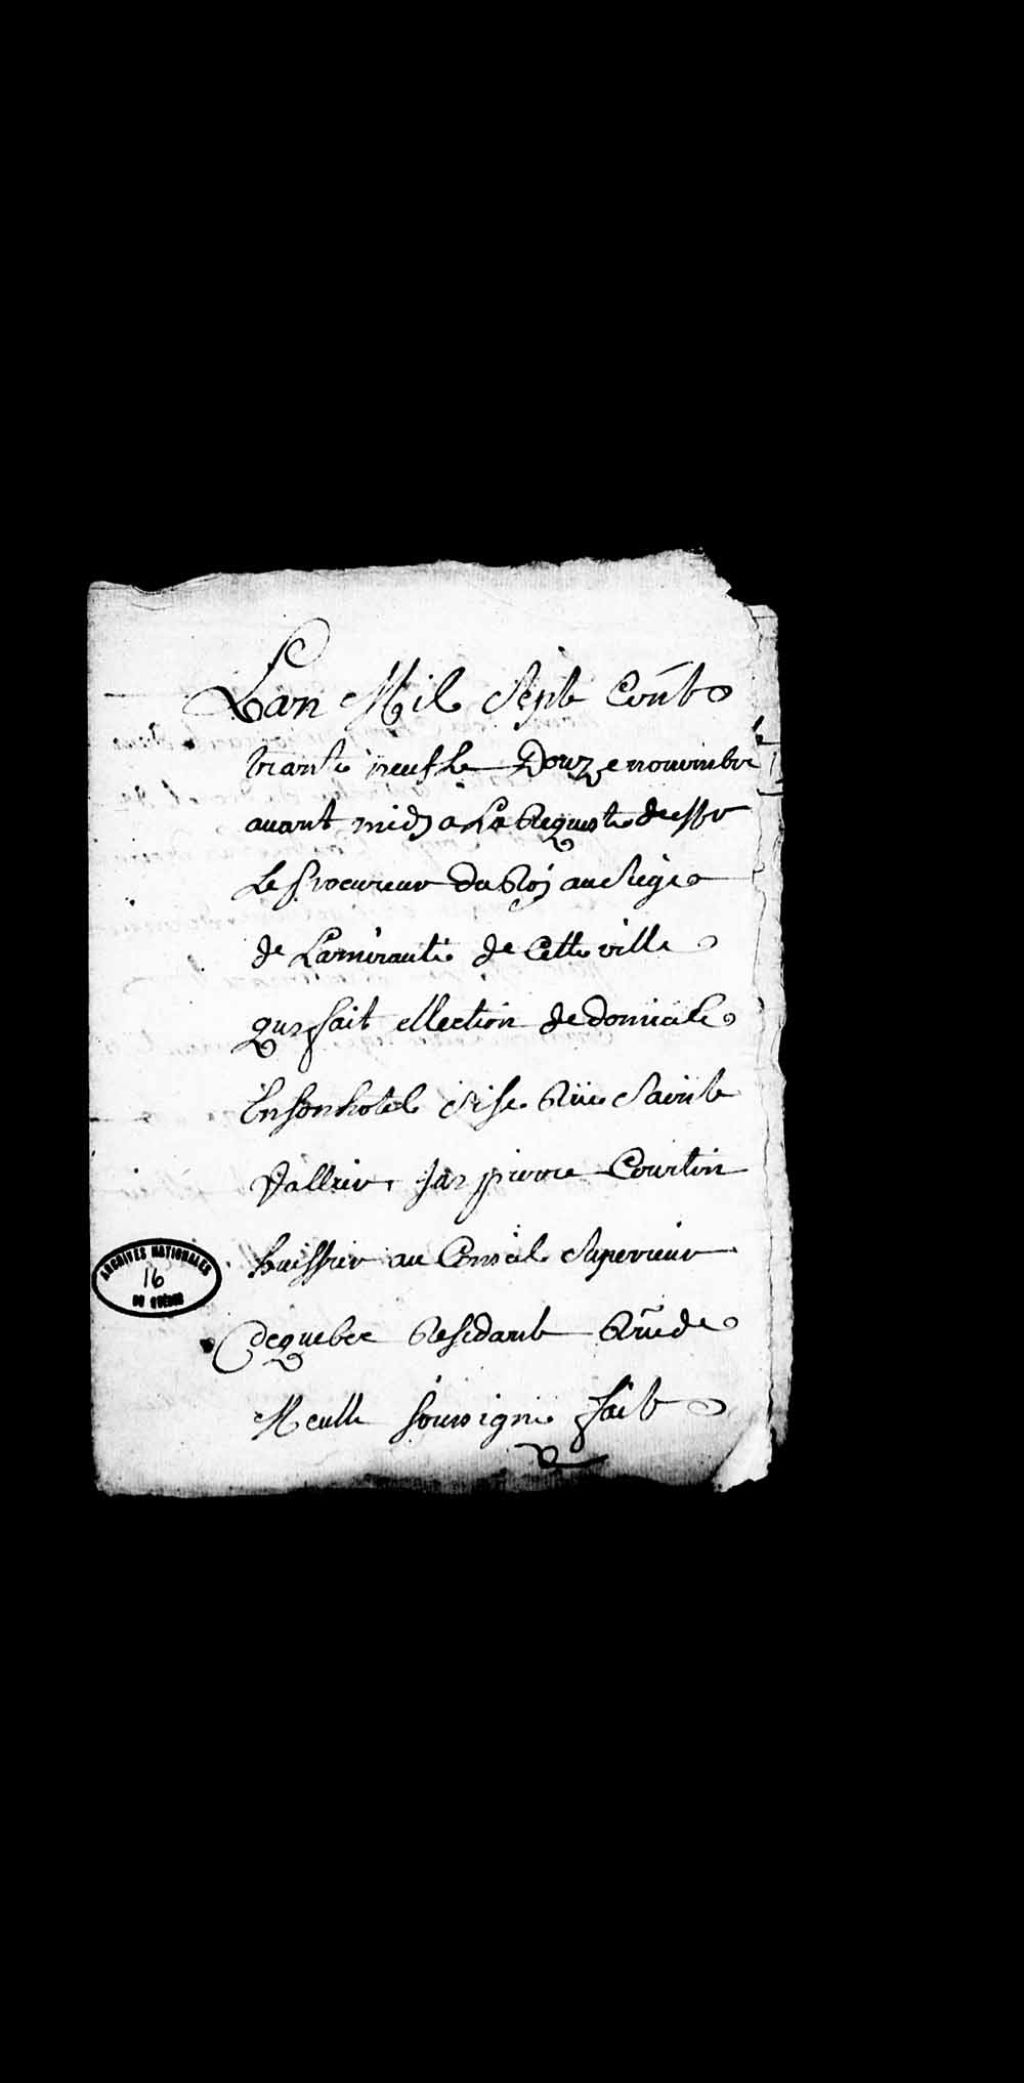 Lan Mil Sept Cent
trante neuf le Douze nouembre
auant midy a La Requeste de
Le procureur du Roy au Siege
de Lamirauté de Cette ville
quy fait ellection de domicile
En son hotel sise Rüe Sainte
Vallier, Jay pierre Courtin
huissier au Conseil Superieur
de quebec Residant Rüe de
Meulle soussigné fait
ARCHIVES NATIONALES
16
DU QUÉBEC